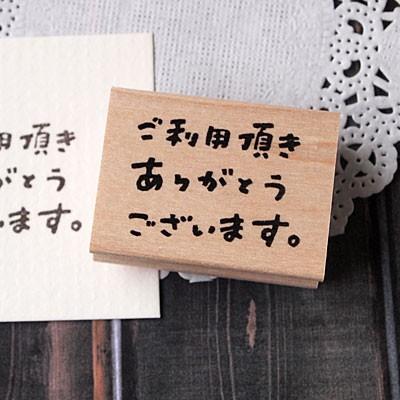 ご利用頂き
ありがとう
ございます。
用頂き
がとう
います。